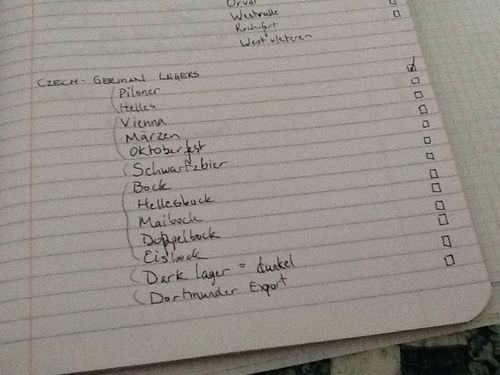 Orval
Westmalle
Rochefort
Westvleteren
CZECH - GERMAN LAGERS
Pilsner
Helles
Vienna
Märzen
Oktoberfest
Schwartzbier
Bock
Hellesbock
Maibock
Doppelbock
Eisbock
Dark lager = dunkel
Dortmunder Export